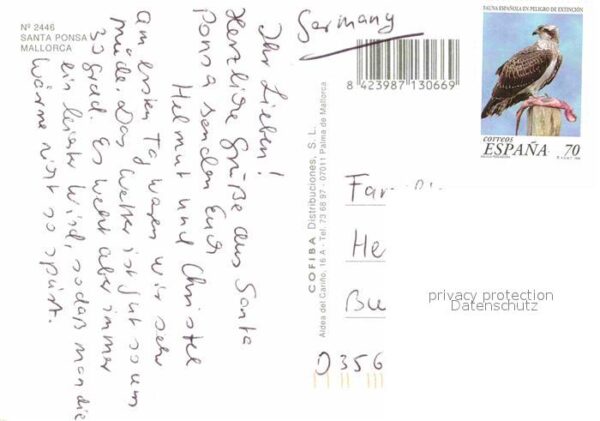 Nº 2446
SANTA PONSA
MALLORCA
Ihr Lieben!
Herzliche Grüße aus Santa
Ponsa senden Euch
Helmut und Christel
Am ersten Tag waren wir sehr
müde. Das Wetter ist gut so um
33 Grad. Es weht aber immer
ein leichter Wind, sodaß man die
Wärme nicht so spürt.
Germany
8 423987 130669
COFIBA Distribuciones, S. L.
Aldea del Cariño, 16 A - Tel. 73 68 97 - 07011 Palma de Mallorca
FAUNA ESPAÑOLA EN PELIGRO DE EXTINCIÓN
correos
ESPAÑA 70
Fa
He
Bu
D 356
privacy protection
Datenschutz